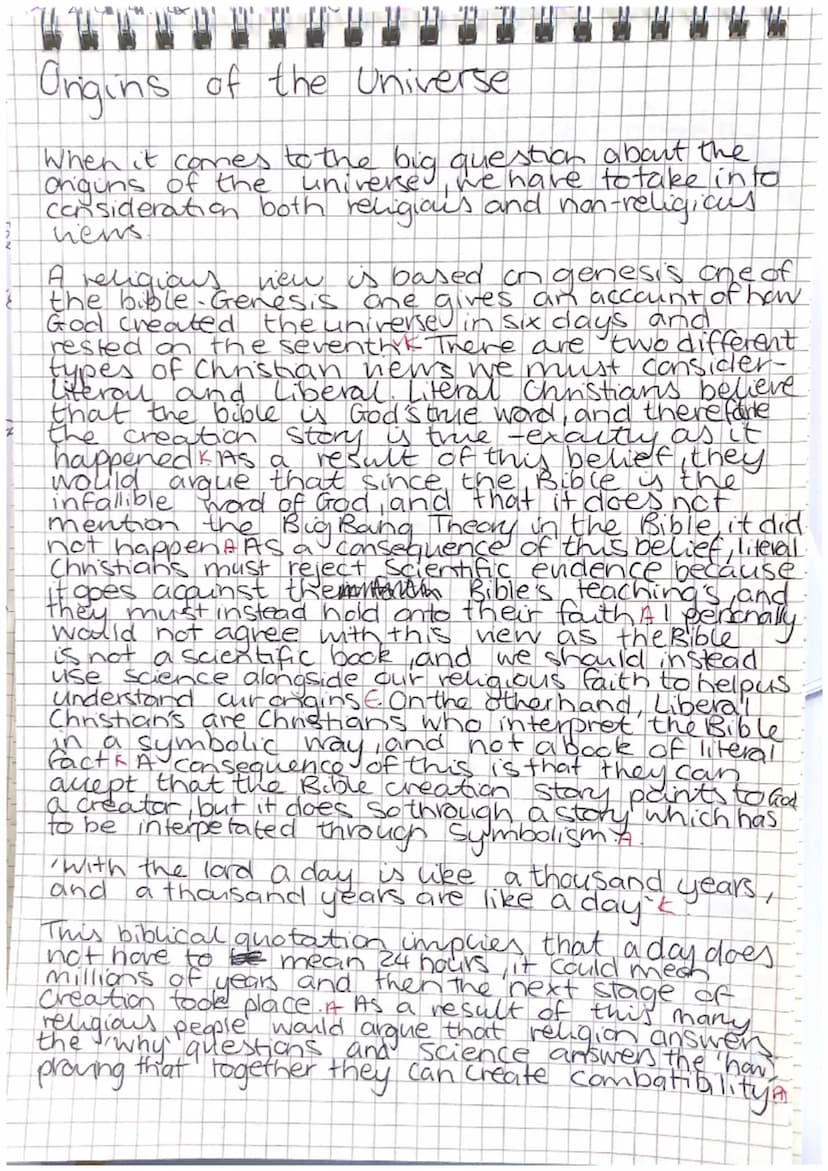 Origins of the Universe
When it comes to the big question about the
origins of the universe, we have to take into
consideration both religious and non-religious
views.
A religious view is based on genesis one of
the bible. Genesis one gives an account of how
God created the universe in six days and
rested on the seventh. K There are two different
types of Christian views we must consider-
literal and Liberal. Literal Christians believe
that the bible is God's true word, and therefore
the creation story is true - exactly as it
happened K As a result of this belief, they
would argue that since the Bible is the
infallible word of God, and that it does not
mention the Big Bang Theory in the Bible, it did
not happen A As a consequence of this belief, literal
Christians must reject scientific evidence because
it goes against the Bible's teachings, and
they must instead hold onto their faith A I personally
would not agree with this view as the Bible
is not a scientific book, and we should instead
use science alongside our religious faith to help us
understand our origins E On the other hand, Liberal
Christian's are Christians who interpret the Bible
in a symbolic way, and not a book of literal
fact K A consequence of this is that they can
accept that the Bible creation story points to God
a creator, but it does so through a story which has
to be interpetated through symbolism. A
'With the lord a day is like a thousand years,
and a thousand years are like a day' K
This biblical quotation implies that a day does
not have to mean 24 hours, it could mean
millions of years and then the next stage of
creation took place. A As a result of this many
religious people would argue that religion answers
the 'why' questions and science answers the 'how'
proving that together they can create combatibility A